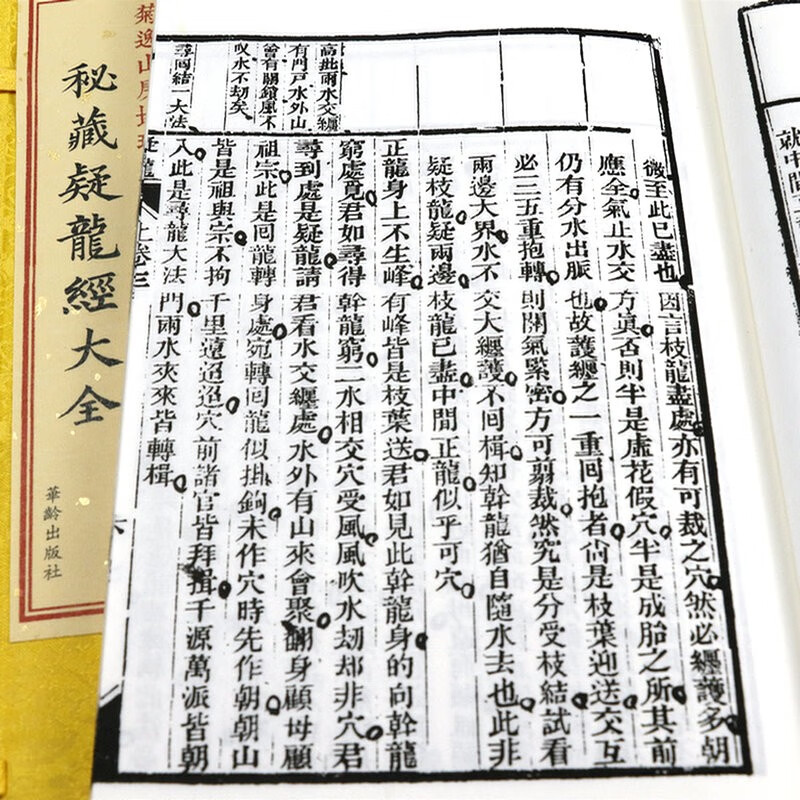 就中間
高批兩水交纏
有門戶水外山
會有關鎖風不
吹水不刼矣
尋回結一大法
微至此已盡也因言枝龍盡處亦有可裁之穴然必纏護多朝
應全氣止水交方眞否則半是虛花假穴半是成胎之所其前
仍有分水出脈也故護纏之一重回抱者尙是枝葉迎送交互
必三五重抱轉則關氣緊密方可剪裁然究是分受枝結試看
兩邊大界水不交大纏護不回楫知幹龍猶自隨水去也此非
疑枝龍疑兩邊枝龍已盡中間正龍似乎可穴
正龍身上不生峰有峰皆是枝葉送君如見此幹龍身的向幹龍
窮處覓君如尋得幹龍窮二水相交穴受風風吹水刼却非穴君
尋到處是疑龍請君看水交纏處水外有山來會聚翻身顧母顧
祖宗此是回龍轉身處宛轉回龍似掛鉤未作穴時先作朝朝山
皆是祖與宗不拘千里遠迢迢穴前諸官皆拜揖千源萬派皆朝
入此是尋龍大法門兩水夾來皆轉楫
疑龍 上卷三 六
菊逸山房
秘藏疑龍經大全
華齡出版社